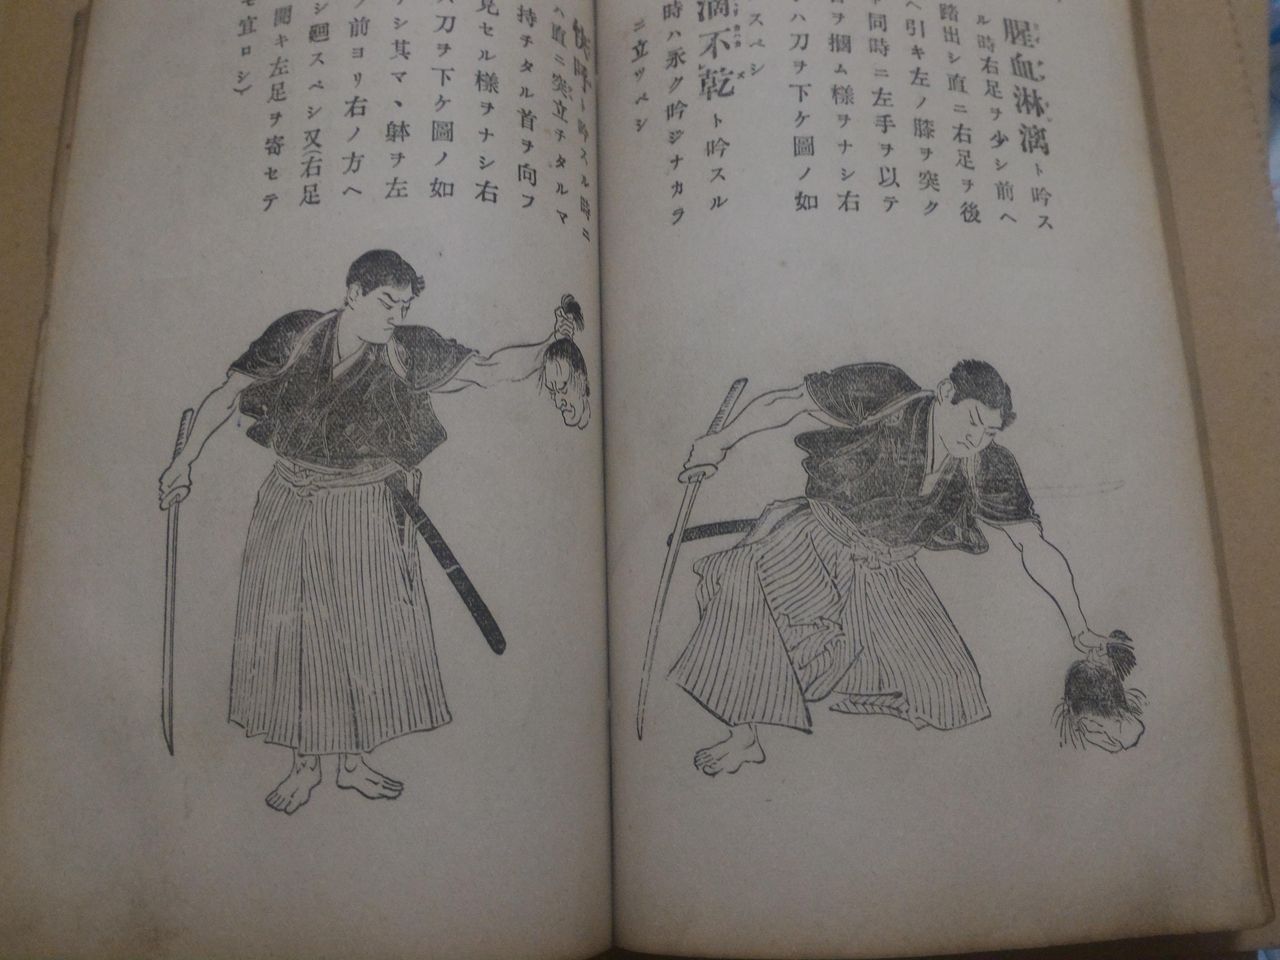 腥血淋漓ト吟ス
ル時右足ヲ少シ前ヘ
踏出シ直ニ右足ヲ後
ヘ引キ左ノ膝ヲ突ク
ト同時ニ左手ヲ以テ
ヲ摑ム様ヲナシ右
ハ刀ヲ下ケ圖ノ如
スベシ
滴不乾ト吟スル
時ハ永ク吟ジナカラ
ニ立ツベシ
快呼ト吟スル時ニ
ハ直ニ突立チタルマ
持チタル首ヲ向フ
見セル様ヲナシ右
ハ刀ヲ下ケ圖ノ如
シ其マヽ躰ヲ左
ノ前ヨリ右ノ方ヘ
シ廻スベシ又(右足
開キ左足ヲ寄セテ
モ宜ロシ)